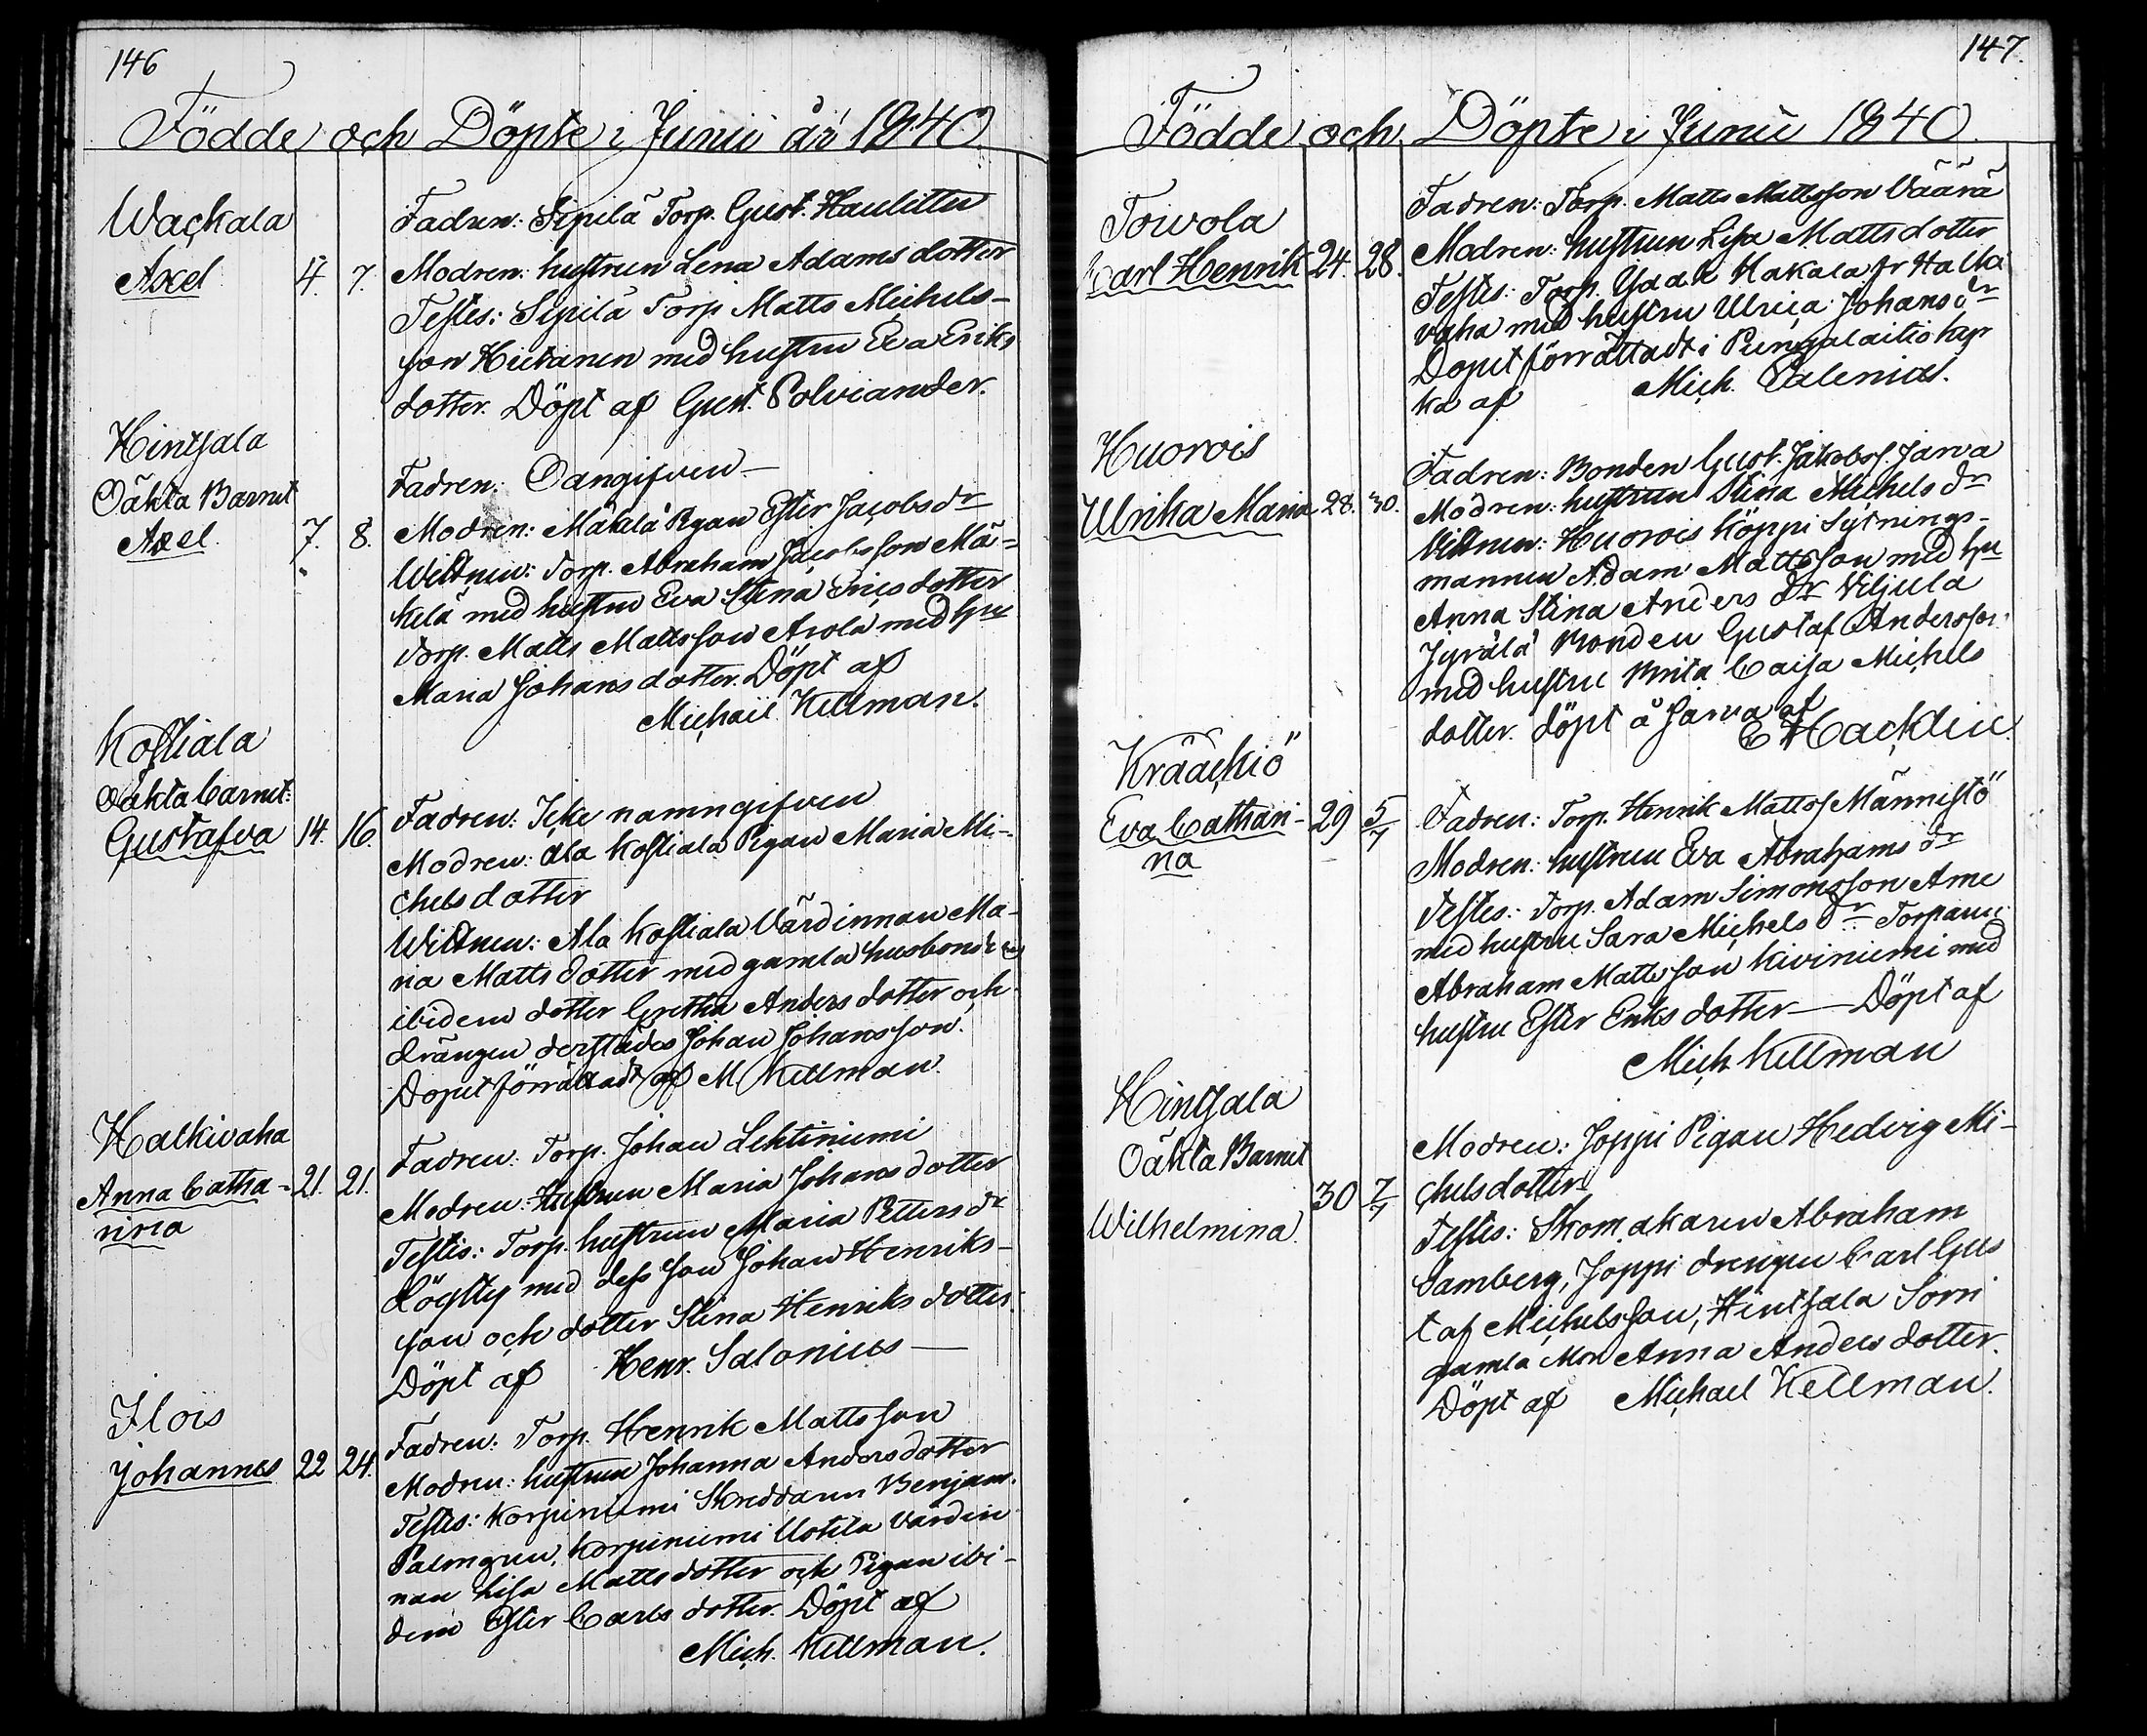 146
Födde och Döpte i Junii år 1840
Wackala
Axel
4. 7.
Fadren: Sipilä Torp. Gust. Haulitter
Modren: hustrun Lena Adamsdotter
Testes: Sipilä Torp Matts Michels-
son Hietanen med hustru Eva Eriks
dotter. Döpt af Gust. Polviander.
Hintsala
Oäkta Barnet
Axel.
7. 8.
Fadren: Oangifven —
Modren: Mäkilä Pigan Ester Jacobs dr
Wittnen: Torp. Abraham Jacobsson Mä-
kelä med hustru Eva Stina Erics dotter
Torp. Matts Mattsson Arola med hu
Maria Johans dotter. Döpt af
Michael Kellman.
Kostiala
Oäkta barnet:
Gustafva
14. 16.
Fadren: Icke namngifven
Modren: Ala Kostiala Pigan Maria Mi-
chels dotter
Wittnen: Ala Kostiala Värdinnan Ma-
ria Matts dotter med gamla husbondens
ibidem dotter Gretha Anders dotter och
drängen derstädes Johan Johansson.
Dopet förrättadt af M Kellman.
Halkivaha
Anna Catha-
rina
21. 21.
Fadren: Torp. Johan Lehtiniemi
Modren: Hustrun Maria Johans dotter
Testis: Torp. hustrun Maria Petters dr
med dess son Johan Henriks-
son och dotter Stina Henriks dotter.
Döpt af Henr. Salonius —
Ilois
Johannes
22 24.
Fadren: Torp. Henrik Mattsson
Modren: hustrun Johanna Andersdotter
Testes: Korpiniemi Skreddaren Benjam.
Palmgren, Korpiniemi Uotila värdin
nan Lisa Mattsdotter och Pigan ibi-
dem Ester Carls dotter. Döpt af
Mich. Kellman.
147.
Födde och Döpte i Junii 1840.
Toivola
Carl Henrik
24. 28.
Fadren: Torp. Matts Mattsson Väärä
Modren: hustrun Lisa Mattsdotter
Testes: Torp. Isaak Hakala fr Halki
vaha med hustru Ulrica Johans dr
Dopet förrättadt i Pungalaitio kyr
ka af Mich. Palenius.
Huovois
Ulrika Maria
28. 30.
Fadren: Bonden Gust. Jakobss. Jarva
Modren: hustrun Stina Michels dr
Vittnen: Huovois Köppi Sytnings-
mannen Adam Mattsson med hu
Anna Stina Anders dr Viljula
Jyrälä Bonden Gustaf Andersson
med hustru Brita Caisa Michels
dotter. döpt å Jarva af
E Hacklin.
Krääckiö
Eva Cathari-
na
29 5/7
Fadren: Torp. Henrik Mattss Männistö
Modren: hustrun Eva Abrahams dr
Testes: Torp. Adam Simonsson Ame
med hustru Sara Michels dr Torparen
Abraham Mattsson Kiviniemi med
hustru Ester Eriks dotter — Döpt af
Mich Kellman
Hintsala
Oäkta Barnet
Wilhelmina
30 7/7
Modren: Joppi Pigan Hedvig Mi-
chels dotter
Testes: Skomakaren Abraham
Samberg, Joppi drengen Carl Gus
taf Michelsson, Hintsala Sorri
gamla Mor Anna Anders dotter.
Döpt af Michael Kellman.